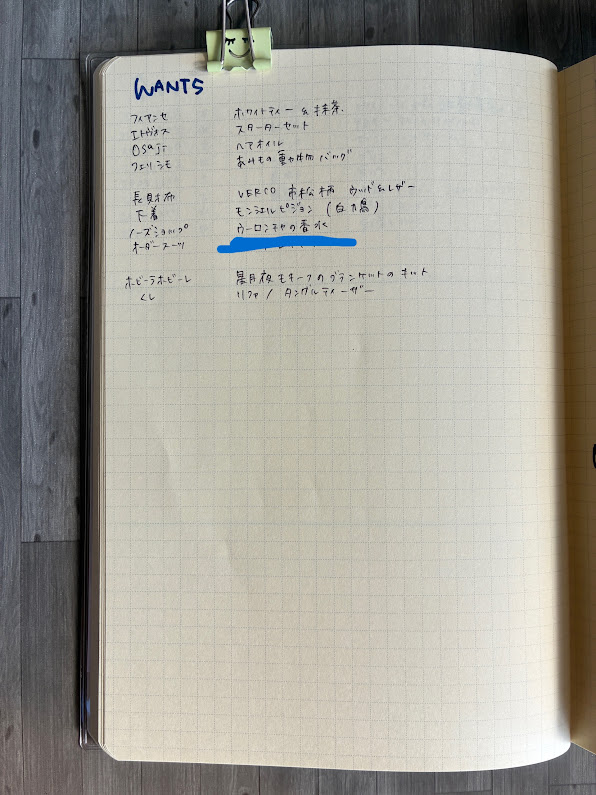 WANTS
フィアンセ ホワイトティー & 抹茶
エトヴォス スターターセット
OSAJI ヘアオイル
フェリシモ あみもの動物バッグ
長財布 VERCO 市松柄 ウッド&レザー
下着 モンシェルピジョン (白鳩)
ノーズショップ ウーロンチャの香水
オーダースーツ
ホビーラホビーレ 月夜モチーフのブランケットのキット
くし リファ / タングルティーザー